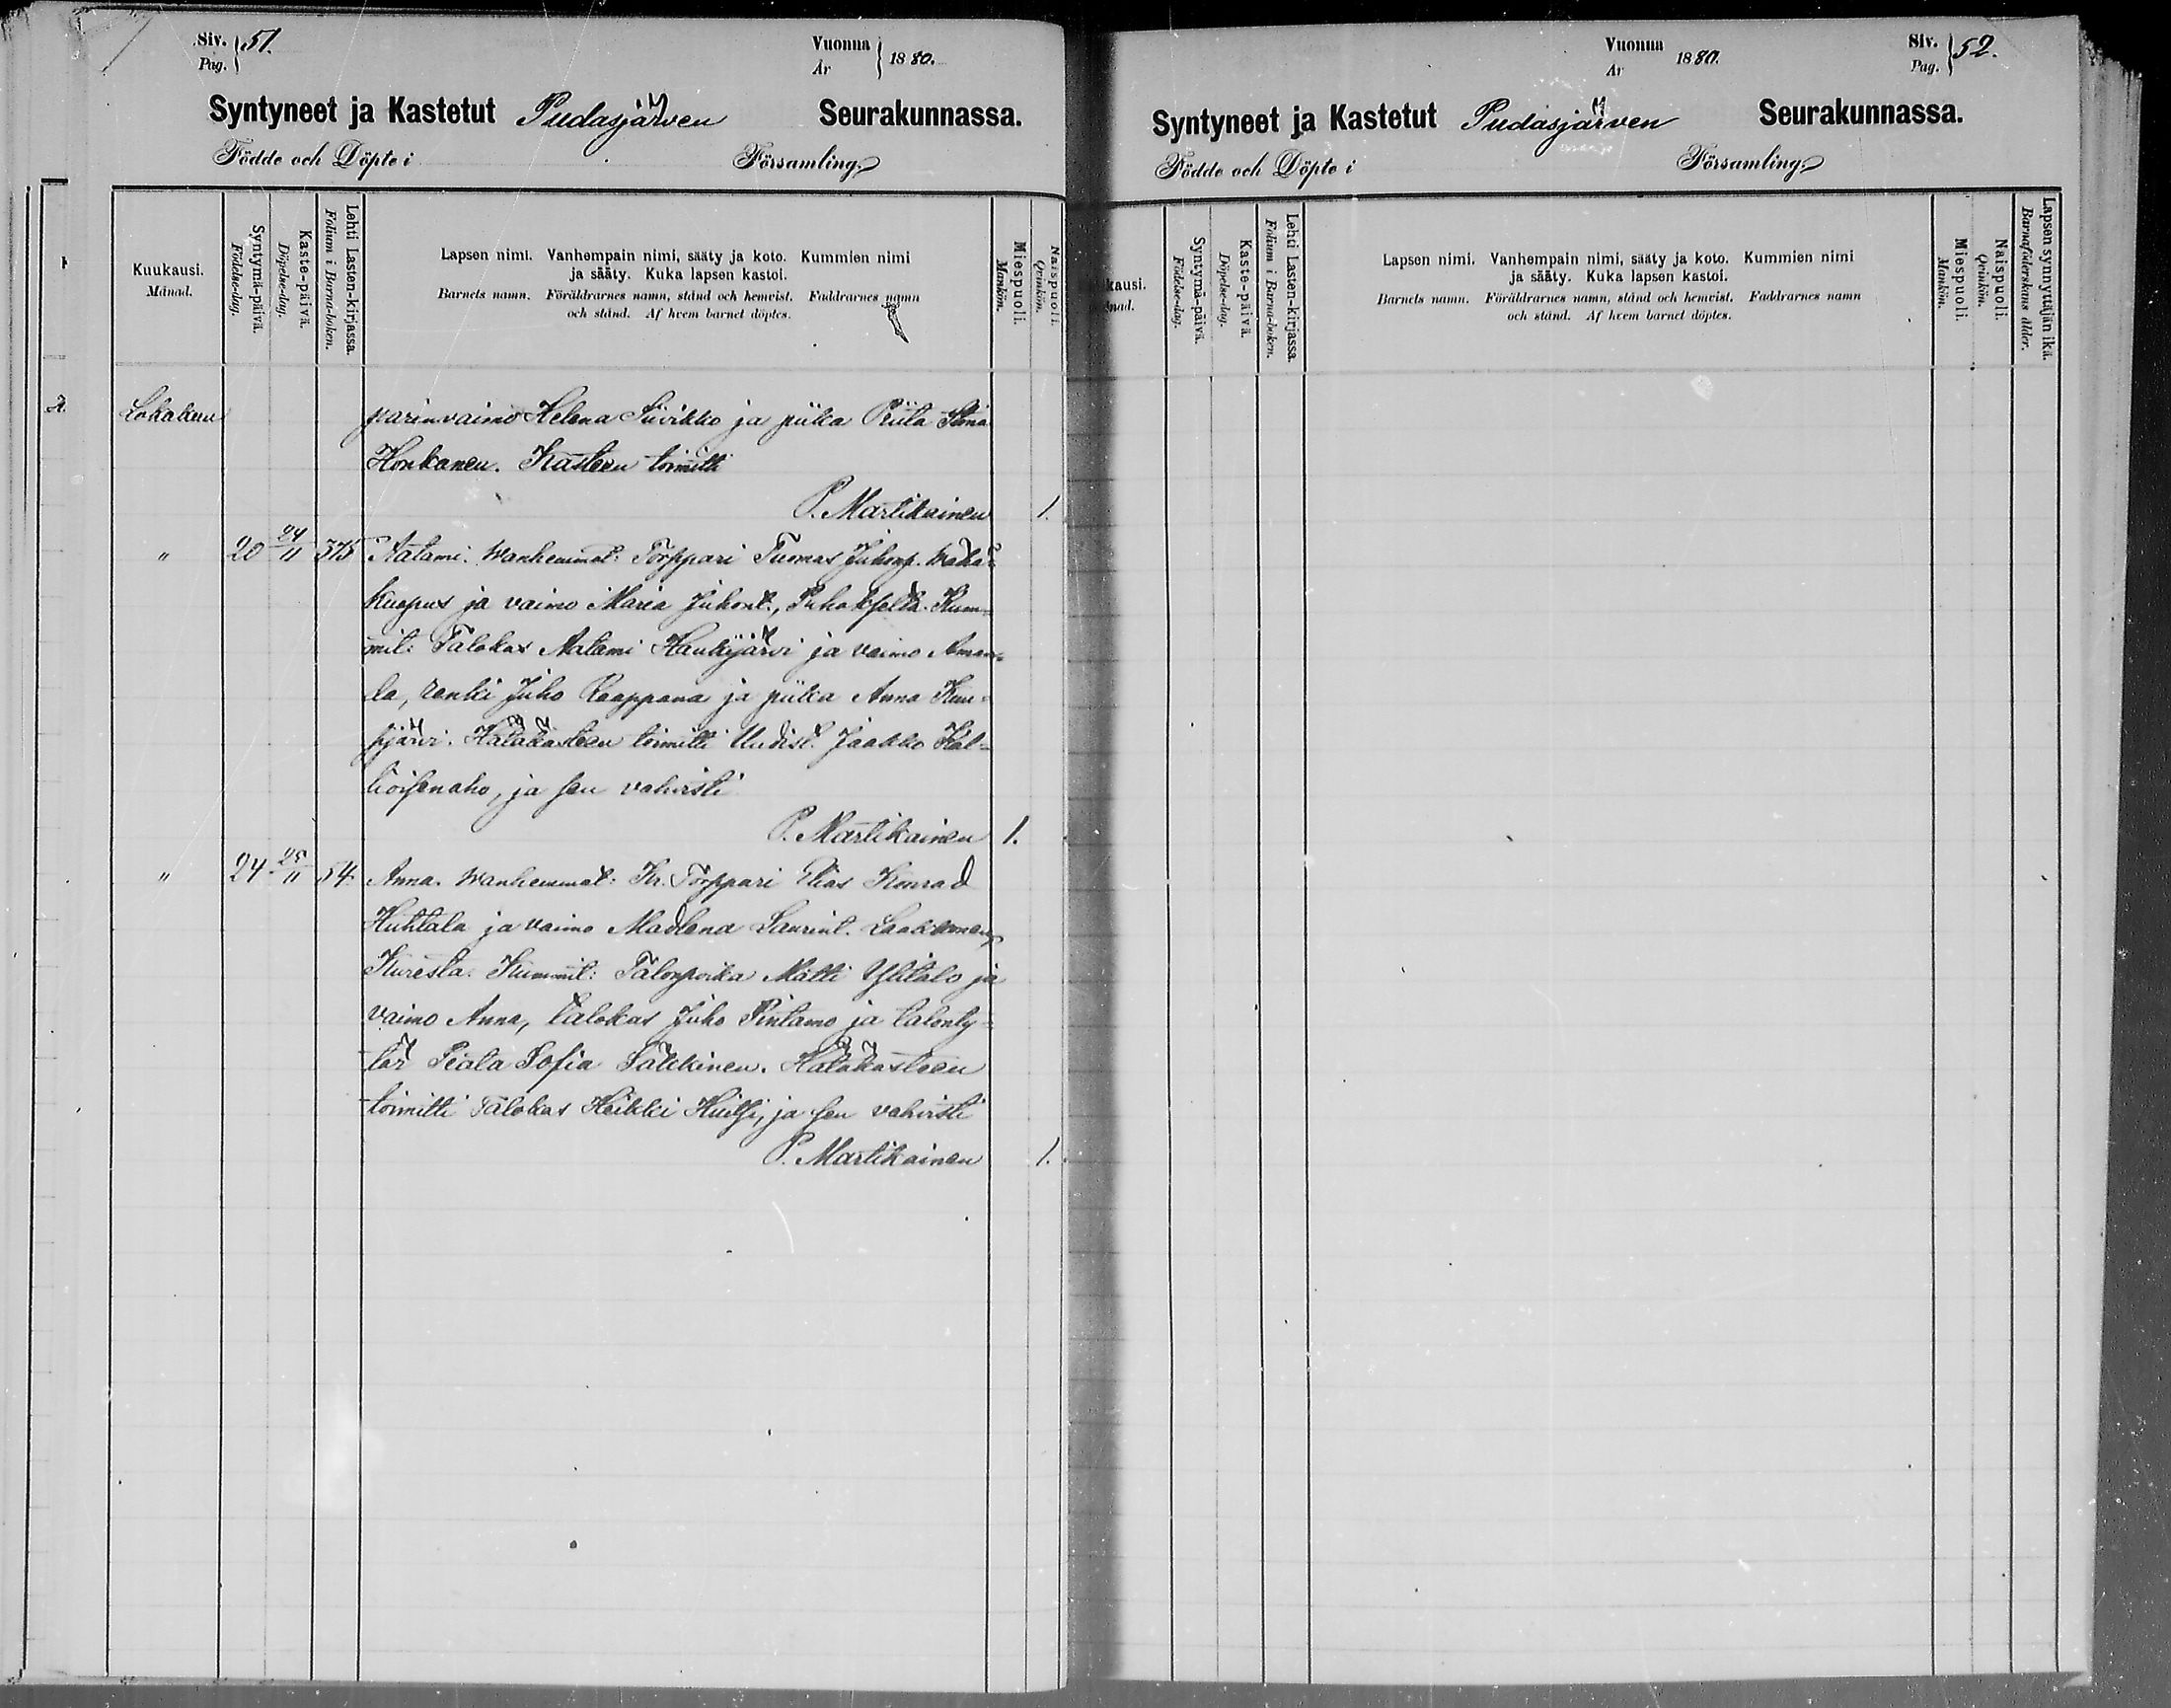 Siv. 51.
Pag.
Vuonna 1880.
År
Syntyneet ja Kastetut Pudasjärven Seurakunnassa.
Födde och Döpte i Församling
Kuukausi.
Månad.
Syntymä-päivä.
Födelse-dag.
Kaste-päivä.
Döpelse-dag.
Lehti Lasten-kirjassa.
Folium i Barna-boken.
Lapsen nimi. Vanhempain nimi, sääty ja koto. Kummien nimi
ja sääty. Kuka lapsen kastoi.
Barnets namn. Föräldrarnes namn, stånd och hemvist. Faddrarnes namn
och stånd. Af hvem barnet döptes.
Miespuoli.
Mankön.
Naispuoli.
Qvinkön.
Lokakuu parinvaimo Helena Siivikko ja piika Priita Stina
Honkanen. Kasteen toimitti
P. Martikainen 1.
" 20 24/11 375 Aatami. Wanhemmat: Torppari Tuomas Juhonp.
kuopus ja vaimo Maria Juhont., Kum=
mit: Talokas Aatami Haukijärvi ja vaimo Aman=
da, renki Juho Kaappana ja piika Anna
järvi. Hätäkasteen toimitti Uudist. Jaakko Kal=
lioisenaho, ja sen vahvisti
P. Martikainen 1.
" 24 25/11 54 Anna. Wanhemmat: Kr. Torppari Elias Konrad
Huhtala ja vaimo Madlena Laurint.
Kuresta. Kummit: Talonpoika Matti Ylitalo ja
vaimo Anna, talokas Juho Pintamo ja talonty=
tär Sofia Särkkinen. Hätäkasteen
toimitti Talokas Heikki, ja sen vahvisti
P. Martikainen 1.
Vuonna 1880.
År
Siv. 52.
Pag.
Syntyneet ja Kastetut Pudasjärven Seurakunnassa.
Födde och Döpte i Församling
kausi.
nad.
Syntymä-päivä.
Födelse-dag.
Kaste-päivä.
Döpelse-dag.
Lehti Lasten-kirjassa.
Folium i Barna-boken.
Lapsen nimi. Vanhempain nimi, sääty ja koto. Kummien nimi
ja sääty. Kuka lapsen kastoi.
Barnets namn. Föräldrarnes namn, stånd och hemvist. Faddrarnes namn
och stånd. Af hvem barnet döptes.
Miespuoli.
Mankön.
Naispuoli.
Qvinkön.
Lapsen synnyttäjän ikä.
Barnaföderskans ålder.